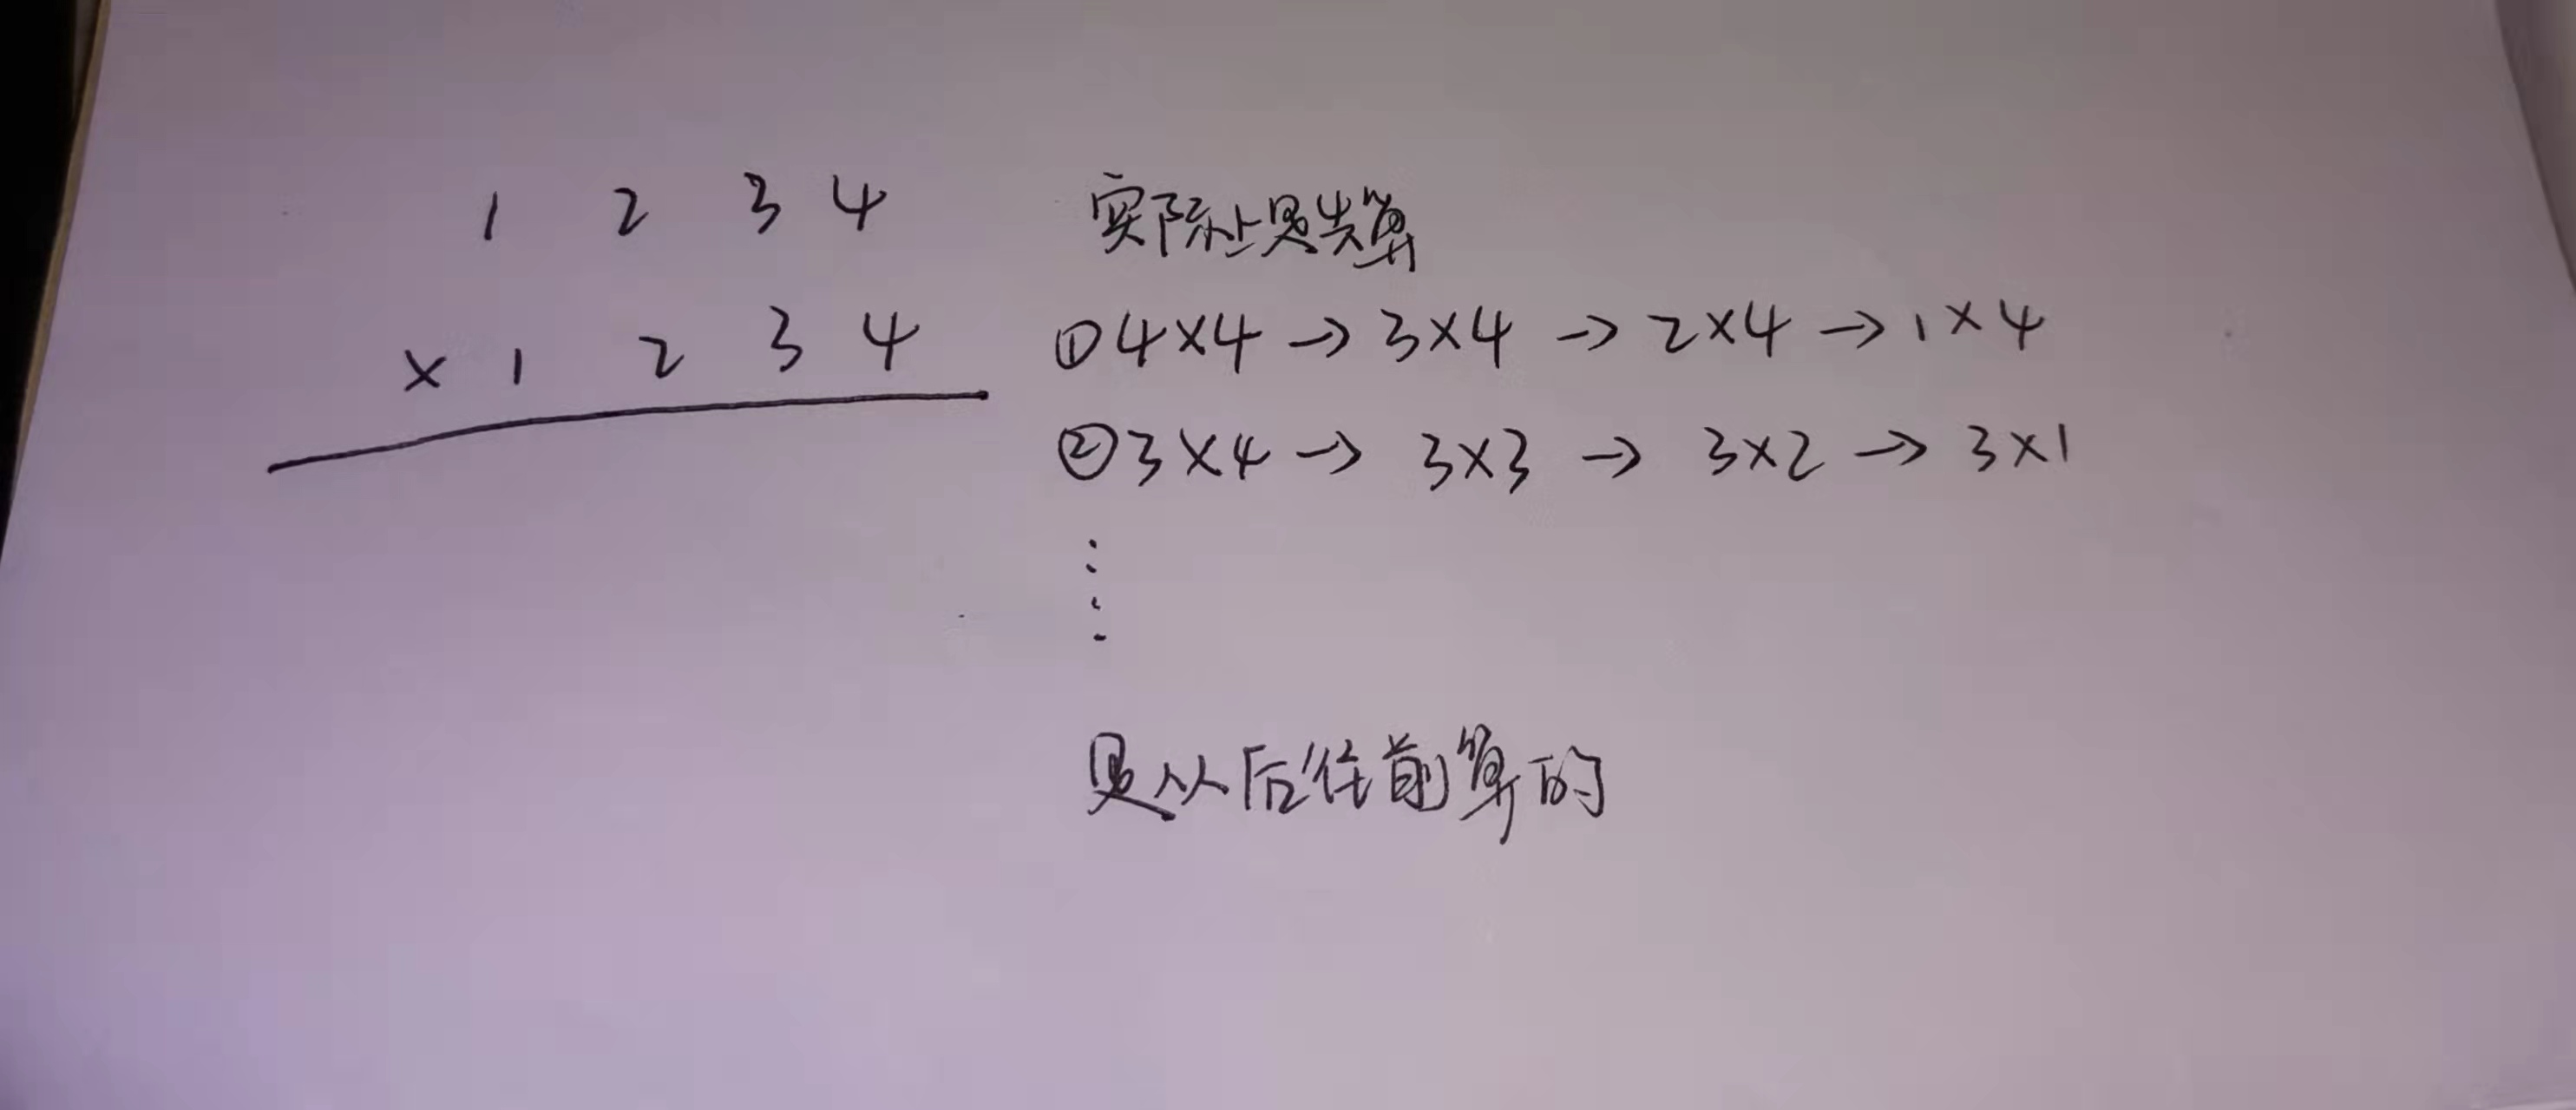 1 2 3 4
× 1 2 3 4
实际上是先算
①4×4→3×4→2×4→1×4
②3×4→3×3→3×2→3×1
⋮
是从后往前算的